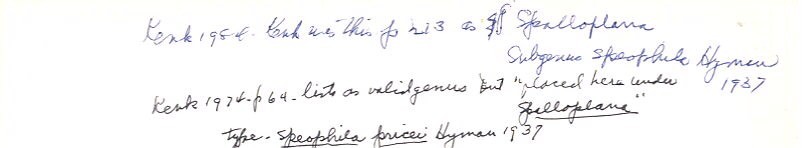 Kenk 1984. Kenk uses this p 213 as Spalloplana
Subgenus Speophila Hyman
1937
Kenk 1974-p 64 - lists as valid genus but "placed here under
Spalloplana"
type - Speophila pricei Hyman 1937